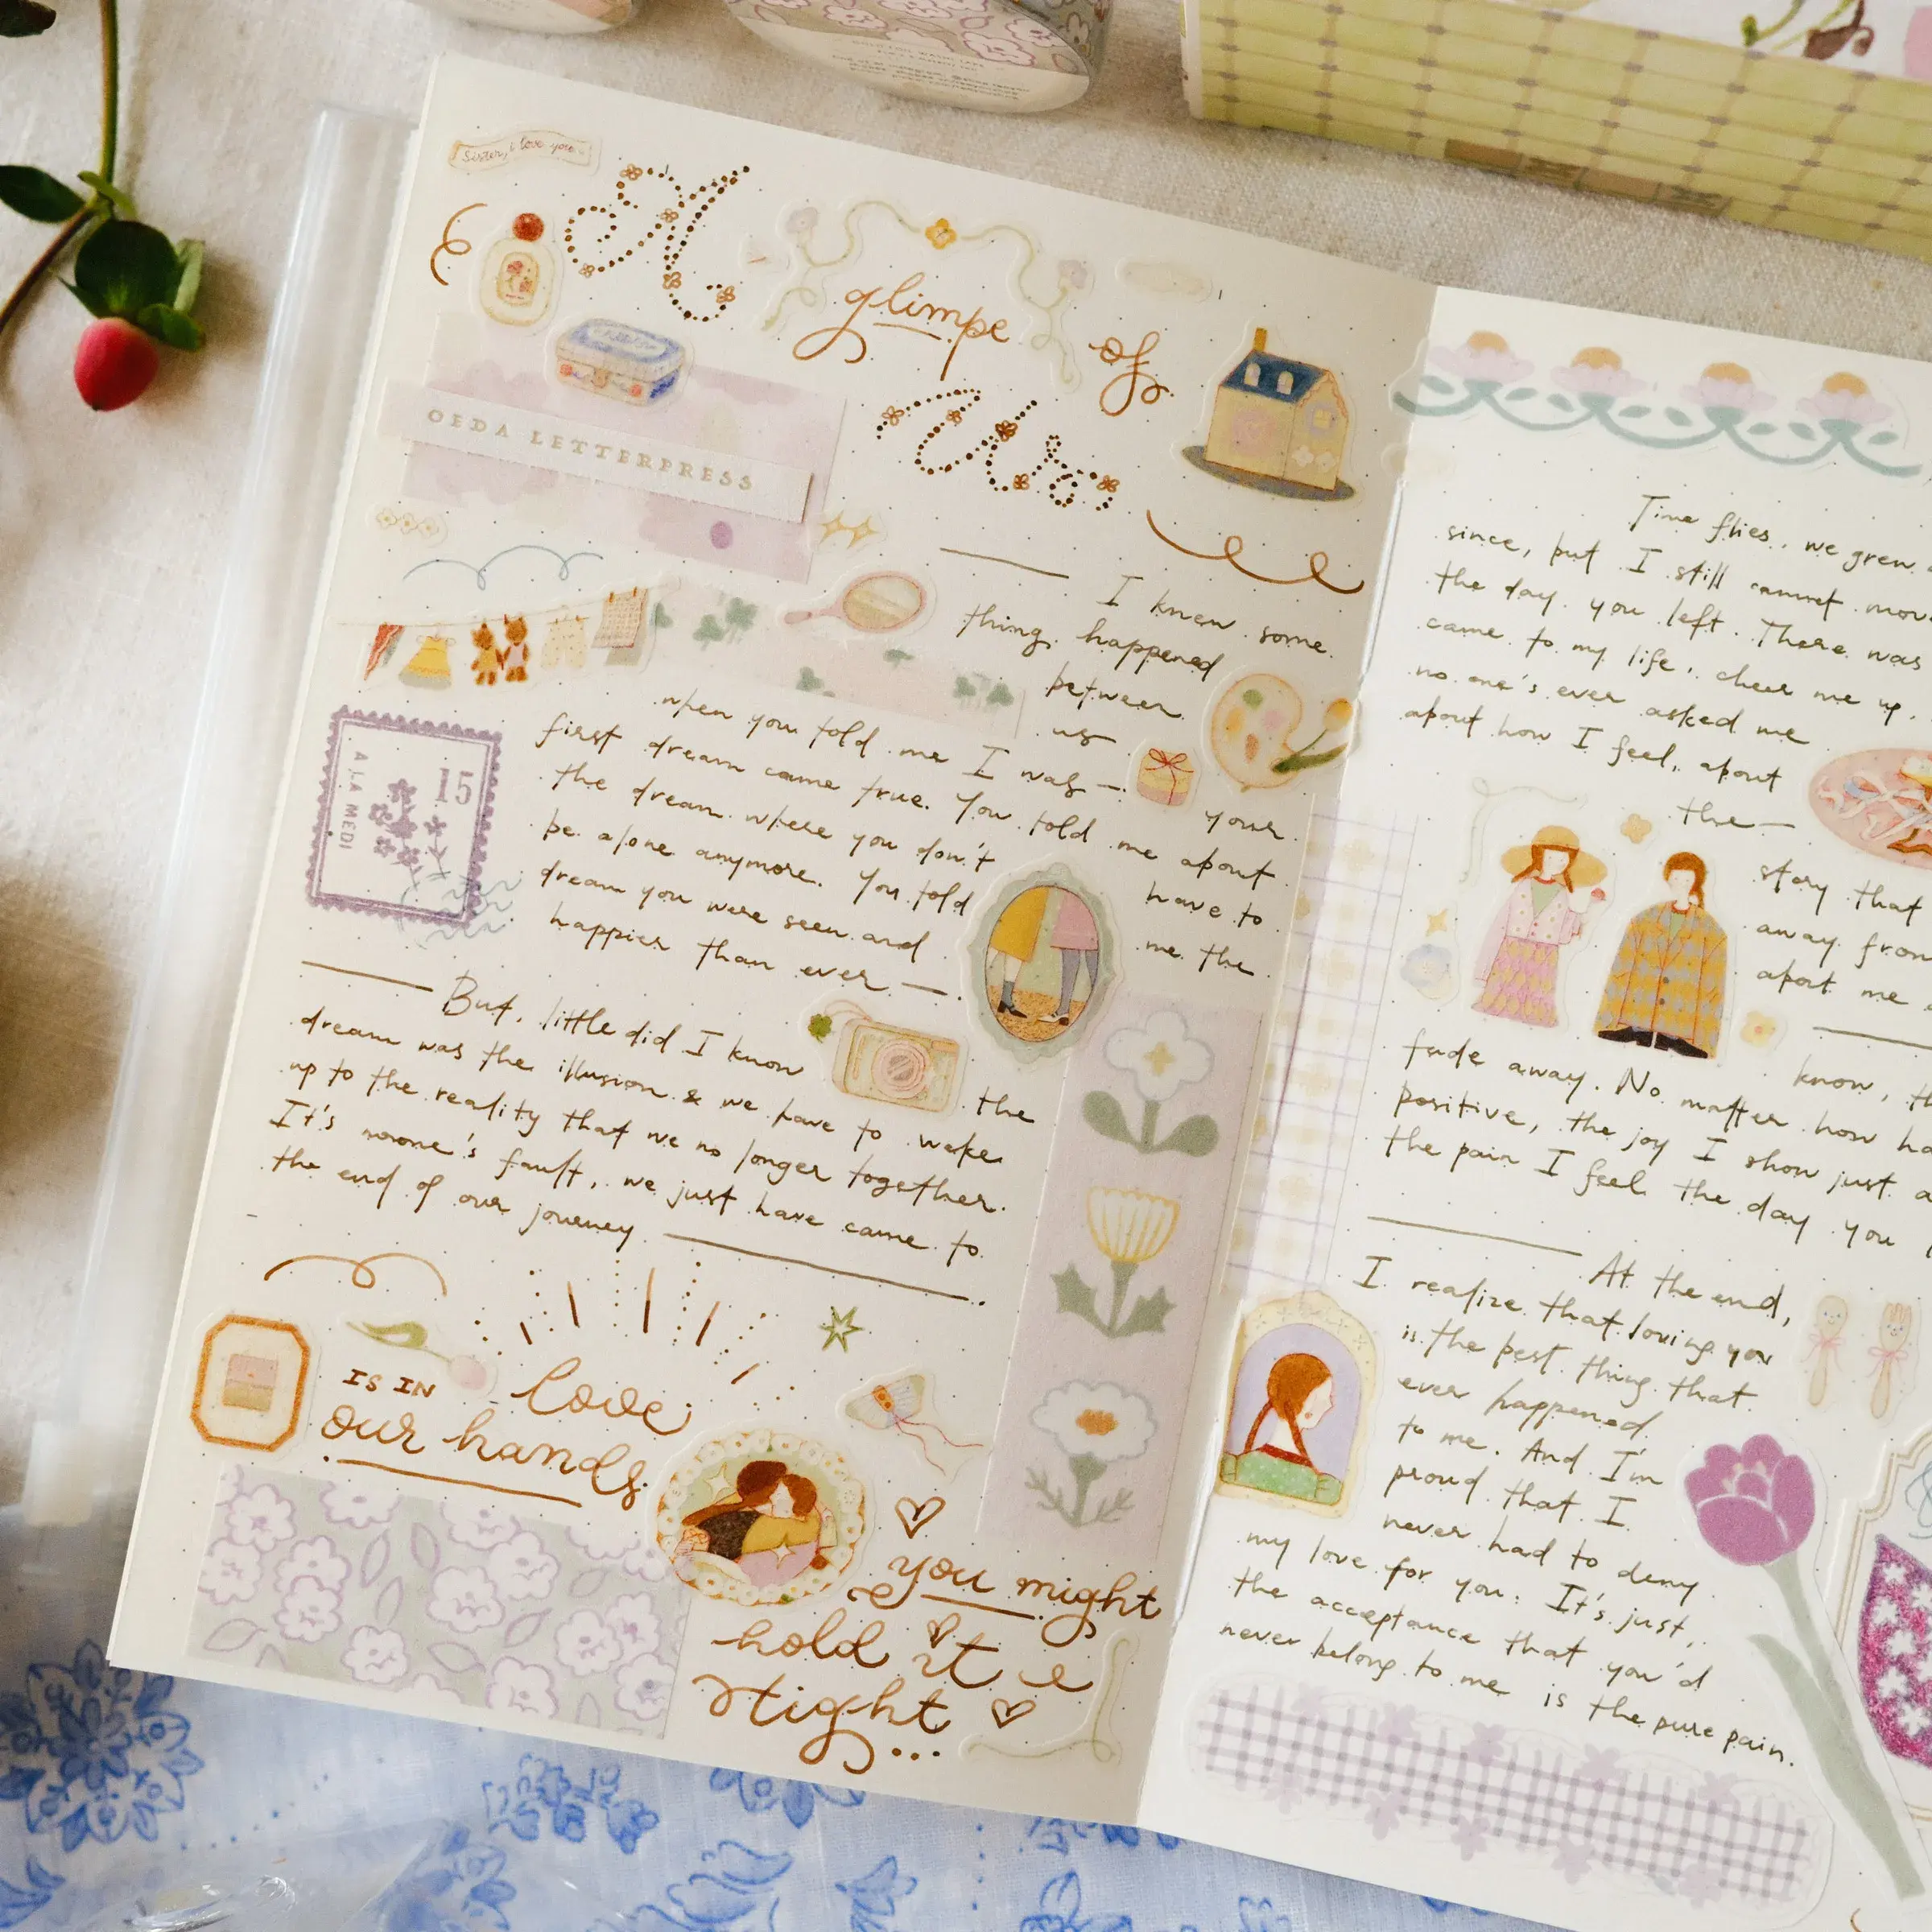 Sister, i love you
A
glimpe of
Us
OEDA LETTERPRESS
I knew some
thing happened
between
us
when you told me I was — your
first dream came true. You told me about
the dream where you don't have to
be alone anymore. You told me the
dream you were seen and
happier than ever —
15
A LA MEDI
But, little did I know the
dream was the illusion & we have to wake
up to the reality that we no longer together.
It's noone's fault, we just have came to
the end of our journey
IS IN love
our hands
you might
hold it
tight...
Time flies, we grew
since, but I still cannot
the day you left. There was
came to my life, cheer me up.
no one's ever asked me
about how I feel, about
the —
story that
away from
about me
know,
fade away. No matter how
positive, the joy I show just
the pain I feel the day you
At the end,
I realize that loving you
is the best thing that
ever happened
to me. And I'm
proud that I
never had to deny
my love for you. It's just,
the acceptance that you'd
never belong to me is the pure pain.